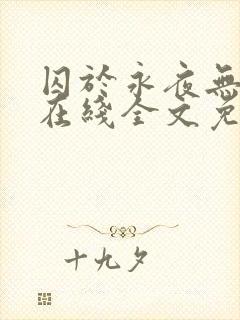 囚於永夜無
在綫全文免
十九夕